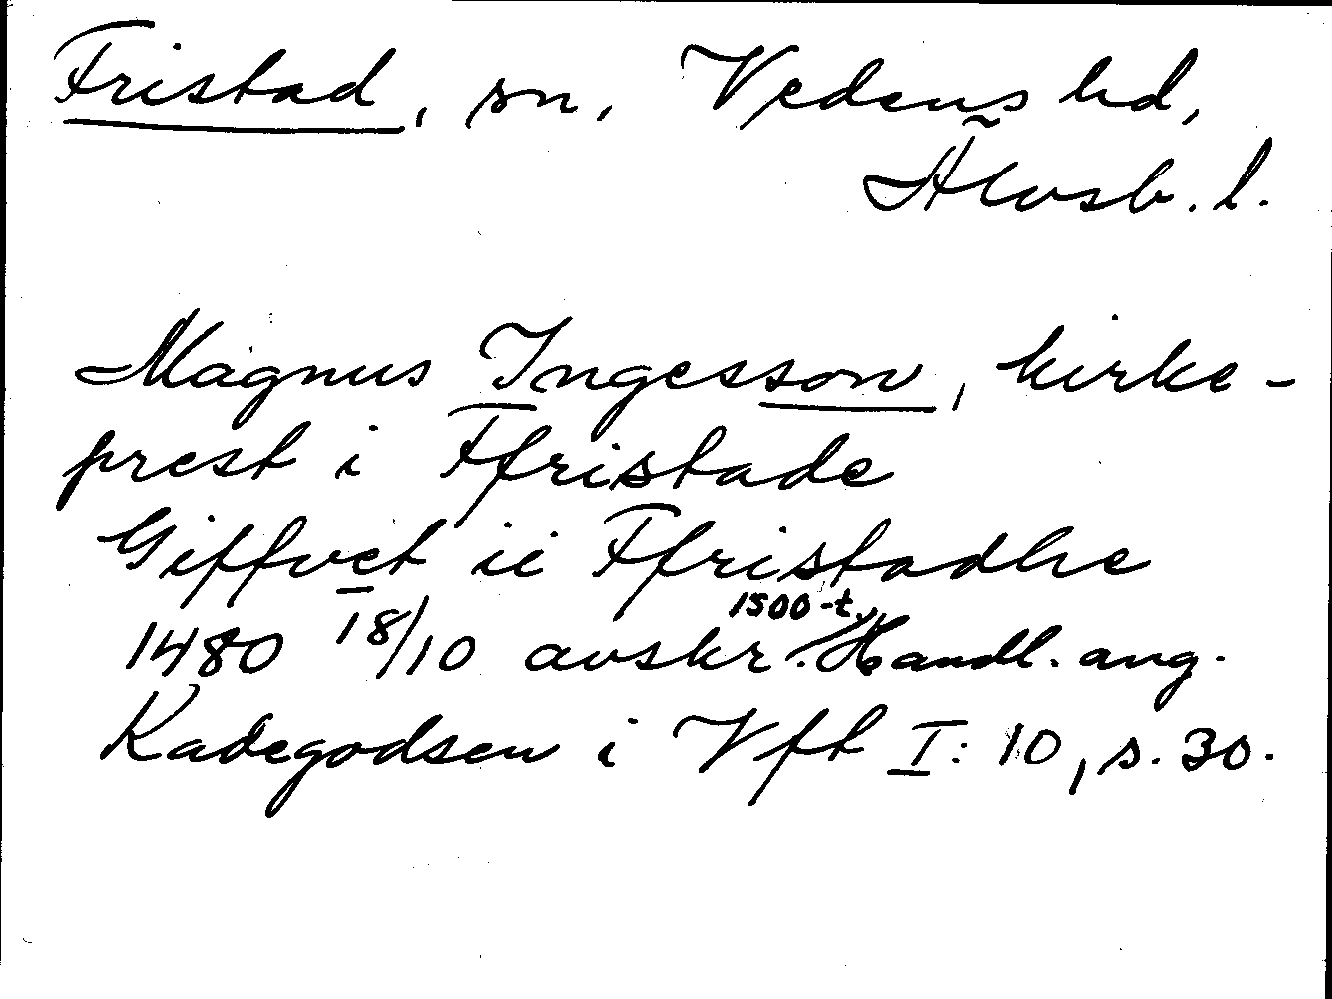 Fristad, sn, Vedens hd,
Älvsb. l.
Magnus Ingesson, kirke-
prest i Ffristade
Giffvet ii Ffristadhe
1480 18/10 avskr. 1500-t. Handl. ang.
Kadegodsen i Vft I: 10, s. 30.